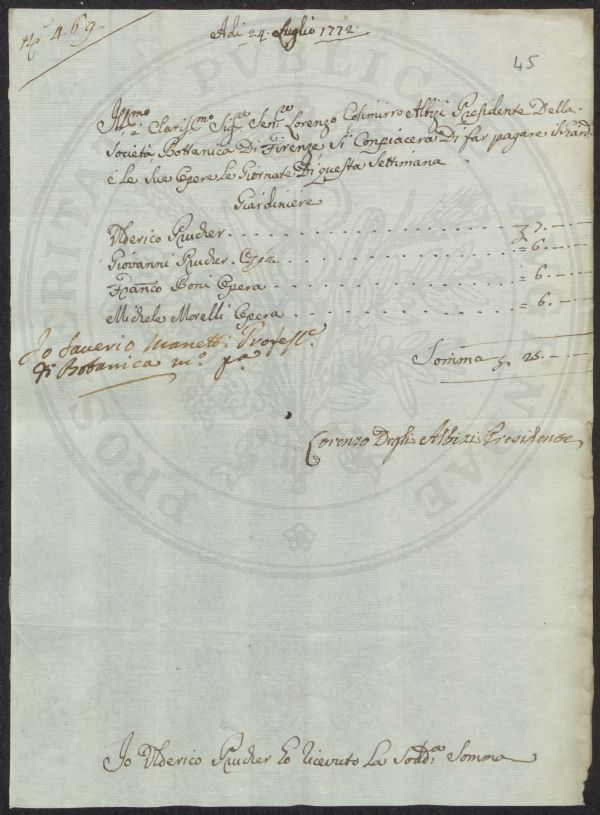 N.º 469
Adi 24. Luglio 1772.
45
Ill.mo
e Clariss.mo Sig.re Sen.re Lorenzo Cosimirro Albizi Presidente Della
Società Bottanica Di Firenze Si Conpiacera Di far pagare
e le Sue Opere le Giornate Di questa Settimana
Giardiniere
Ulderico Prucher . . . 7. —
Giovanni Prucher . . . = 6. —
Franco Boni Opera . . . = 6. —
Michele Morelli Opera . . . = 6. —
Io Saverio Manetti Profess.e
di Botanica m.º p.a
Somma 25. —
Lorenzo Degli Albizi Presidente
Io Ulderico Prucher ho ricevuto La Sodd.a Somma
PROSPERITATI PVBLICAE